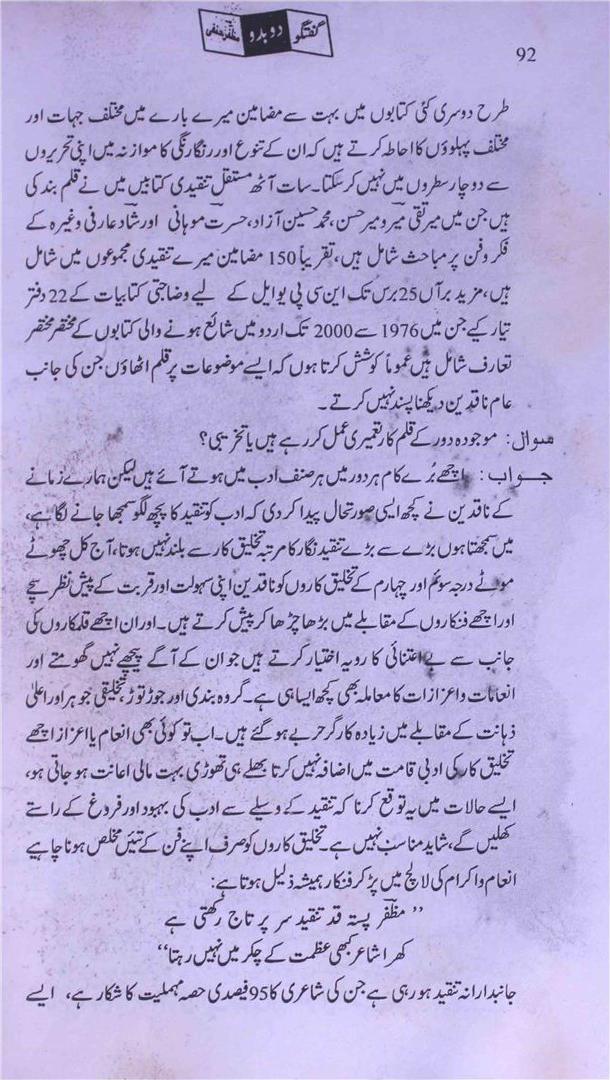 گفتگو دوبدو مظفر حنفی
92
طرح دوسری کئی کتابوں میں بہت سے مضامین میرے بارے میں مختلف جہات اور
مختلف پہلوؤں کا احاطہ کرتے ہیں کہ ان کے تنوع اور رنگارنگی کا موازنہ میں اپنی تحریروں
سے دو چار سطروں میں نہیں کر سکتا۔ سات آٹھ مستقل تنقیدی کتابیں میں نے قلم بند کی
ہیں جن میں میر تقی میر و میر حسن، محمد حسین آزاد، حسرت موہانی اور شاد عارفی وغیرہ کے
فکر و فن پر مباحث شامل ہیں، تقریباً 150 مضامین میرے تنقیدی مجموعوں میں شامل
ہیں، مزید برآں 25 برس تک این سی پی یو ایل کے لیے وضاحتی کتابیات کے 22 دفتر
تیار کیے جن میں 1976 سے 2000 تک اردو میں شائع ہونے والی کتابوں کے مختصر مختصر
تعارف شامل ہیں عموماً کوشش کرتا ہوں کہ ایسے موضوعات پر قلم اٹھاؤں جن کی جانب
عام ناقدین دیکھنا پسند نہیں کرتے۔
سوال: موجودہ دور کے قلم کار تعمیری عمل کر رہے ہیں یا تخریبی؟
جواب: اچھے بُرے کام ہر دور میں ہر صنف ادب میں ہوتے آئے ہیں لیکن ہمارے زمانے
کے ناقدین نے کچھ ایسی صورتحال پیدا کر دی کہ ادب کو تنقید کا پچھ لگو سمجھا جانے لگا ہے،
میں سمجھتا ہوں بڑے سے بڑے تنقید نگار کا مرتبہ تخلیق کار سے بلند نہیں ہوتا، آج کل چھوٹے
موٹے درجہ سوئم اور چہارم کے تخلیق کاروں کو ناقدین اپنی سہولت اور قربت کے پیش نظر سچے
اور اچھے فنکاروں کے مقابلے میں بڑھا چڑھا کر پیش کرتے ہیں۔ اور ان اچھے قلمکاروں کی
جانب سے بے اعتنائی کا رویہ اختیار کرتے ہیں جو ان کے آگے پیچھے نہیں گھومتے اور
انعامات و اعزازات کا معاملہ بھی کچھ ایسا ہی ہے۔ گروہ بندی اور جوڑ توڑ، تخلیقی جوہر اور اعلیٰ
ذہانت کے مقابلے میں زیادہ کارگر حربے ہو گئے ہیں۔ اب تو کوئی بھی انعام یا اعزاز اچھے
تخلیق کار کی ادبی قامت میں اضافہ نہیں کرتا بھلے ہی تھوڑی بہت مالی اعانت ہو جاتی ہو،
ایسے حالات میں یہ توقع کرنا کہ تنقید کے وسیلے سے ادب کی بہبود اور فروغ کے راستے
کھلیں گے، شاید مناسب نہیں ہے۔ تخلیق کاروں کو صرف اپنے فن کے تئیں مخلص ہونا چاہیے
انعام و اکرام کی لالچ میں پڑ کر فنکار ہمیشہ ذلیل ہوتا ہے:
’’مظفرؔ پستہ قد تنقید سر پر تاج رکھتی ہے
کھرا شاعر کبھی عظمت کے چکر میں نہیں رہتا‘‘
جانبدارانہ تنقید ہو رہی ہے جن کی شاعری کا 95 فیصدی حصہ مہملیت کا شکار ہے، ایسے